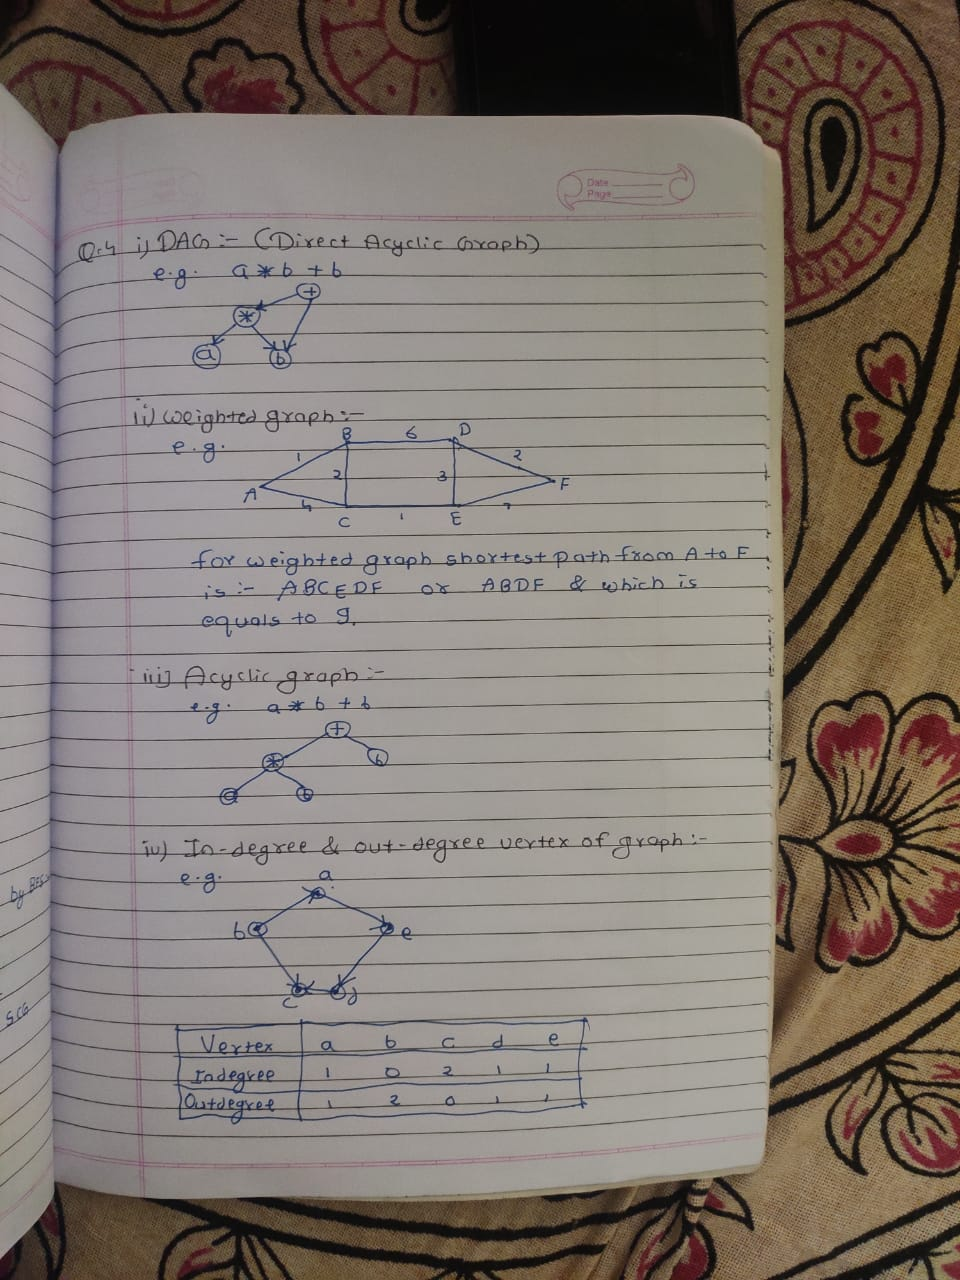 Date
Page
Q.4 i) DAG :- (Direct Acyclic Graph)
e.g. a * b + b
+
*
a b
ii) Weighted graph :-
e.g.
B 6 D
1 2 3 2
A F
4
C 1 E
for weighted graph shortest path from A to F
is :- ABCEDF or ABDF & which is
equals to 9.
iii) Acyclic graph :-
e.g. a * b + b
+
* b
a b
iv) In-degree & out-degree vertex of graph :-
e.g. a
b e
c d
Vertex a b c d e
Indegree 1 0 2 1 1
Outdegree 1 2 0 1 1
by BFS
SCG